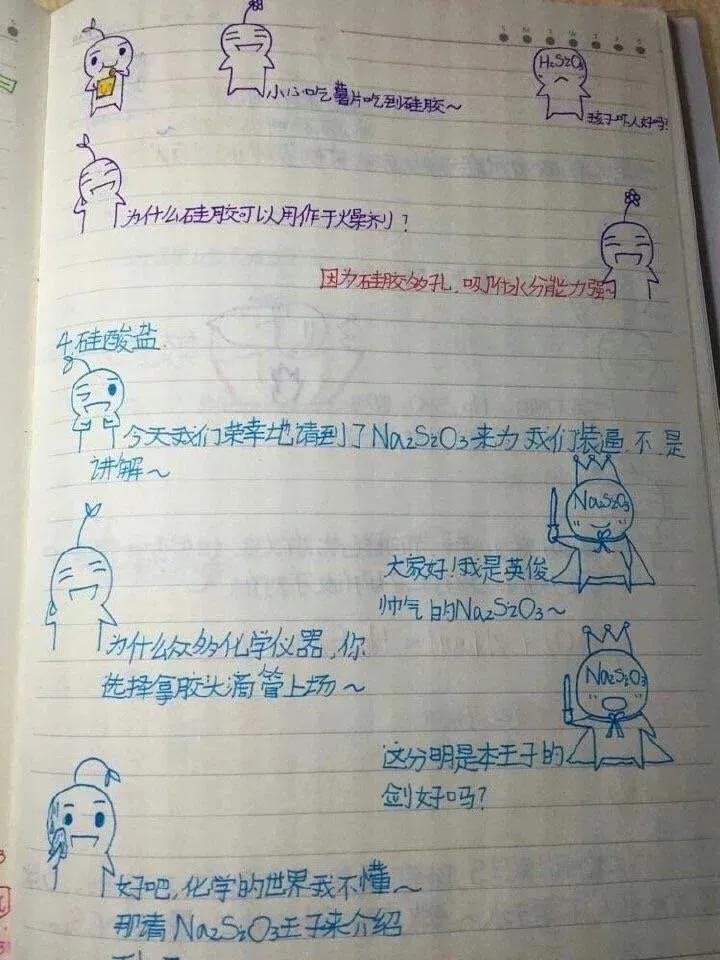 小心吃薯片吃到硅胶~
H₂SiO₃
孩子吓人好吗?
为什么硅胶可以用作干燥剂?
因为硅胶多孔,吸附水分能力强~
4.硅酸盐
今天我们荣幸地请到了Na₂SiO₃来为我们装逼,不,是
讲解~
Na₂SiO₃
大家好!我是英俊
帅气的Na₂SiO₃~
为什么众多化学仪器,你
选择拿胶头滴管上场~
Na₂SiO₃
这分明是本王子的
剑好吗?
好吧,化学的世界我不懂~
那请Na₂SiO₃王子来介绍